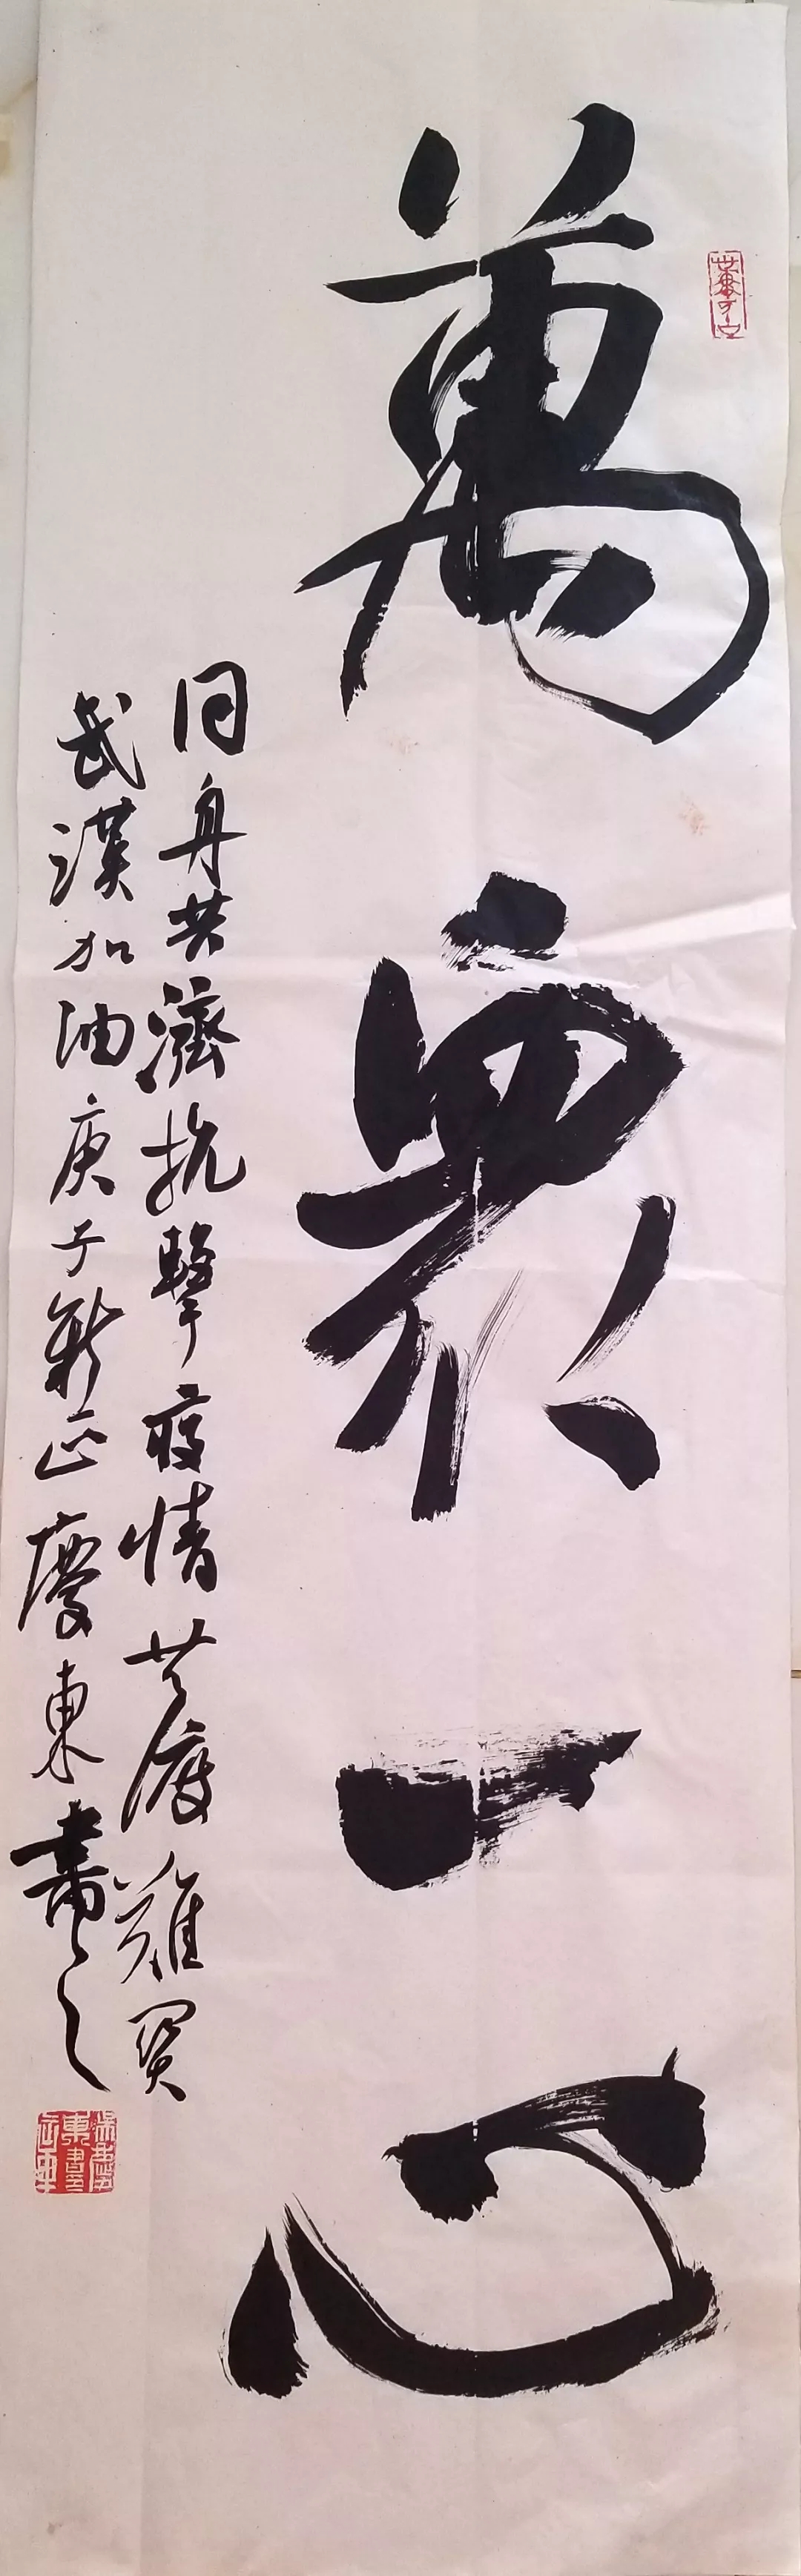 萬眾一心
同舟共濟抗擊疫情共渡難關
武漢加油庚子新正慶東書之